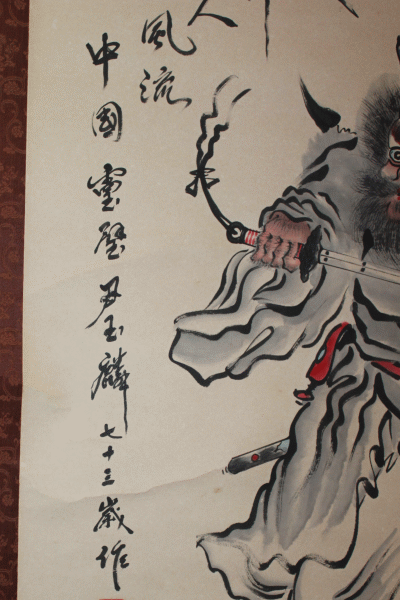 人
風流
中國靈璧尹玉麟七十三歲作